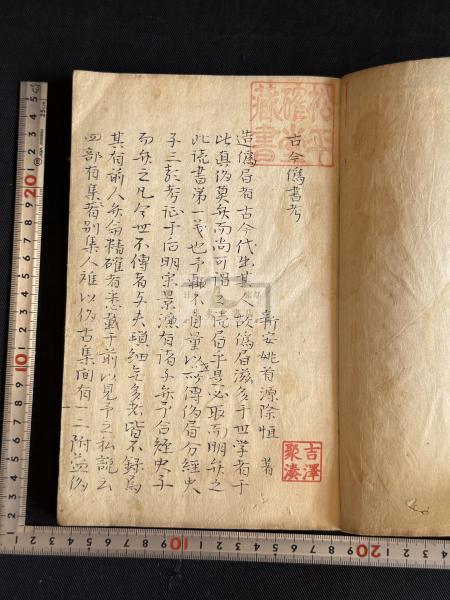 松平
確堂
藏書
古今僞書考
新安姚首源際恒 著
吉澤
聚湊
造僞書者古今代出其人故僞書滋多于世學者于
此真僞莫辨而尚可謂之讀書乎是必取而明辨之
此讀書第一義也予輒不自量以世所傳僞書分經史
子三類考证于后明宋景濂有諸子辨予合經史子
而辨之凡今世不傳者与夫瑣細無多者皆不錄焉
其有前人辨論精確者悉載于前以見予之私說云
四部有集者別集人難以僞古集間有一二附益僞